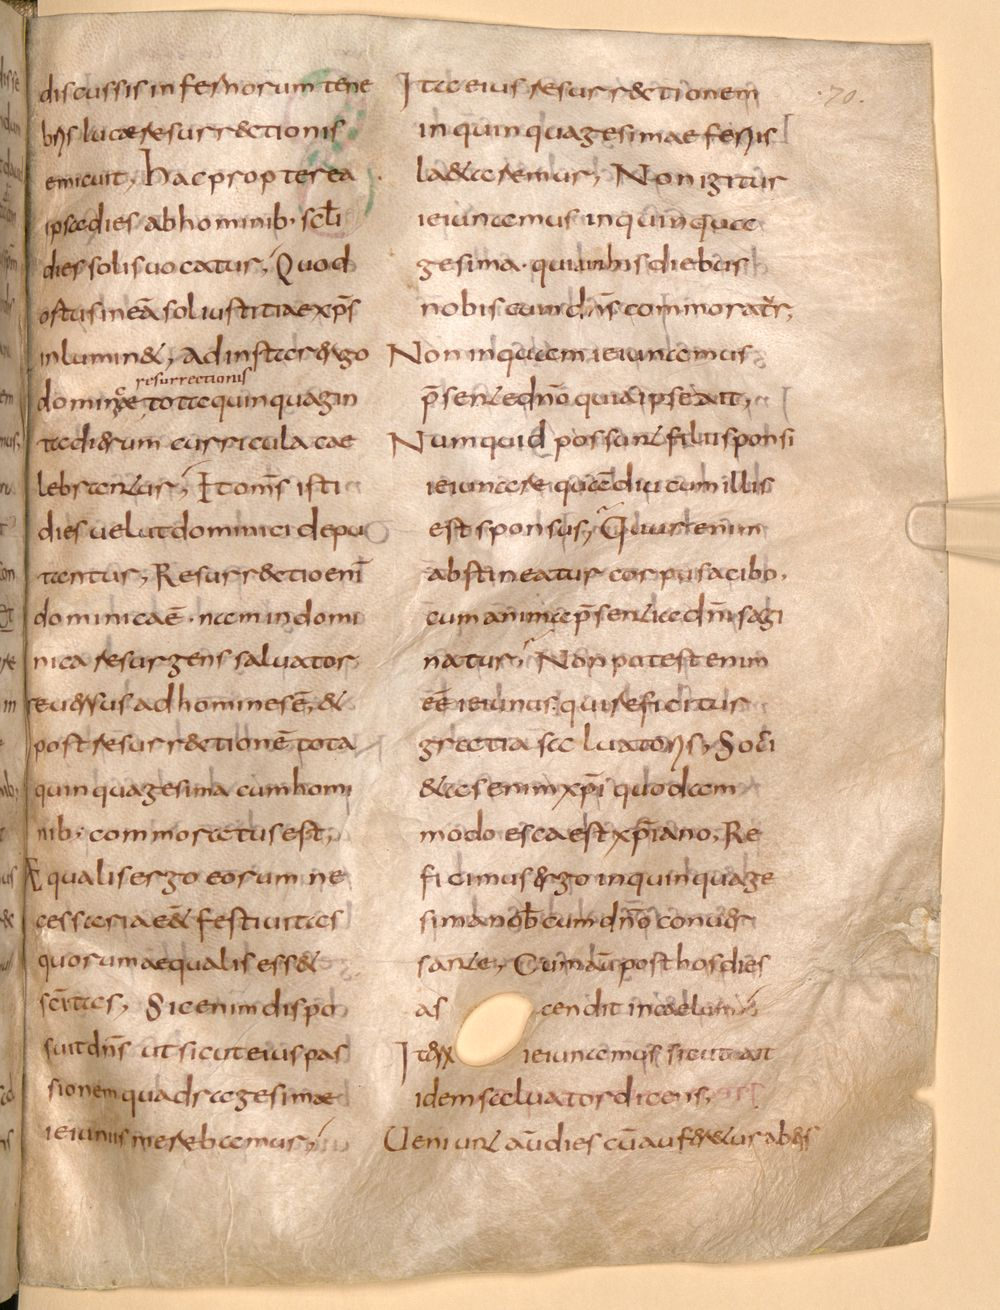 discussis infernorum tene
bris luce resurrectionis
emicuit, hac propterea
ipse dies ab hominib· scli
dies solis uocatur, Quod
ortus in eā sol iustitiae xp̄s
inluminet, Ad instar ergo
dominicae tota quinquagin
resurrectionis
ta dierum curricula cae
lebrantur, Et om̄s isti
dies uelut dominici depu
tantur, Resurrectio eni
dominica ē· nam in domi
nica resurgens saluator
reuersus ad homines ē, et
post resurrectionē tota
quinquagesima cum homi
nib· commoratus est,
Aequalis ergo eorum ne
cessaria et festiuitas
quorum aequalis esset
sc̄itas, Sic enim dispo
suit dn̄s ut sicut eius pas
sionem quadragesimae
ieiuniis merebamur,
·70·
Ita eius resurrectionem
in quinquagesimae feriis
laetaremur, Non igitur
ieiunamus in quinqua
gesima· quia in his diebus
nobiscum dn̄s commoratr,
Non inquam ieiunamus
p̄sente dn̄o quia ipse ait,
Numquid possunt filii sponsi
ieiunare quādiu cum illis
est sponsus, Quur enim
abstineatur corpus a cibo·
cum anima p̄sentia dn̄i sagi
natur, Non potest enim
eē ieiunus· qui reficitur
gratia saluatoris, Soci
etas enim xp̄i quodam
modo esca est xp̄iano, Re
ficimur ergo in quinquage
sima nob cum dn̄o conuer
sante, Cum aū post hos dies
as cendit in caelum
Iterū ieiunamus sicut ait
idem saluator dicens,
Uenient aūdies cū auferetur ab eis